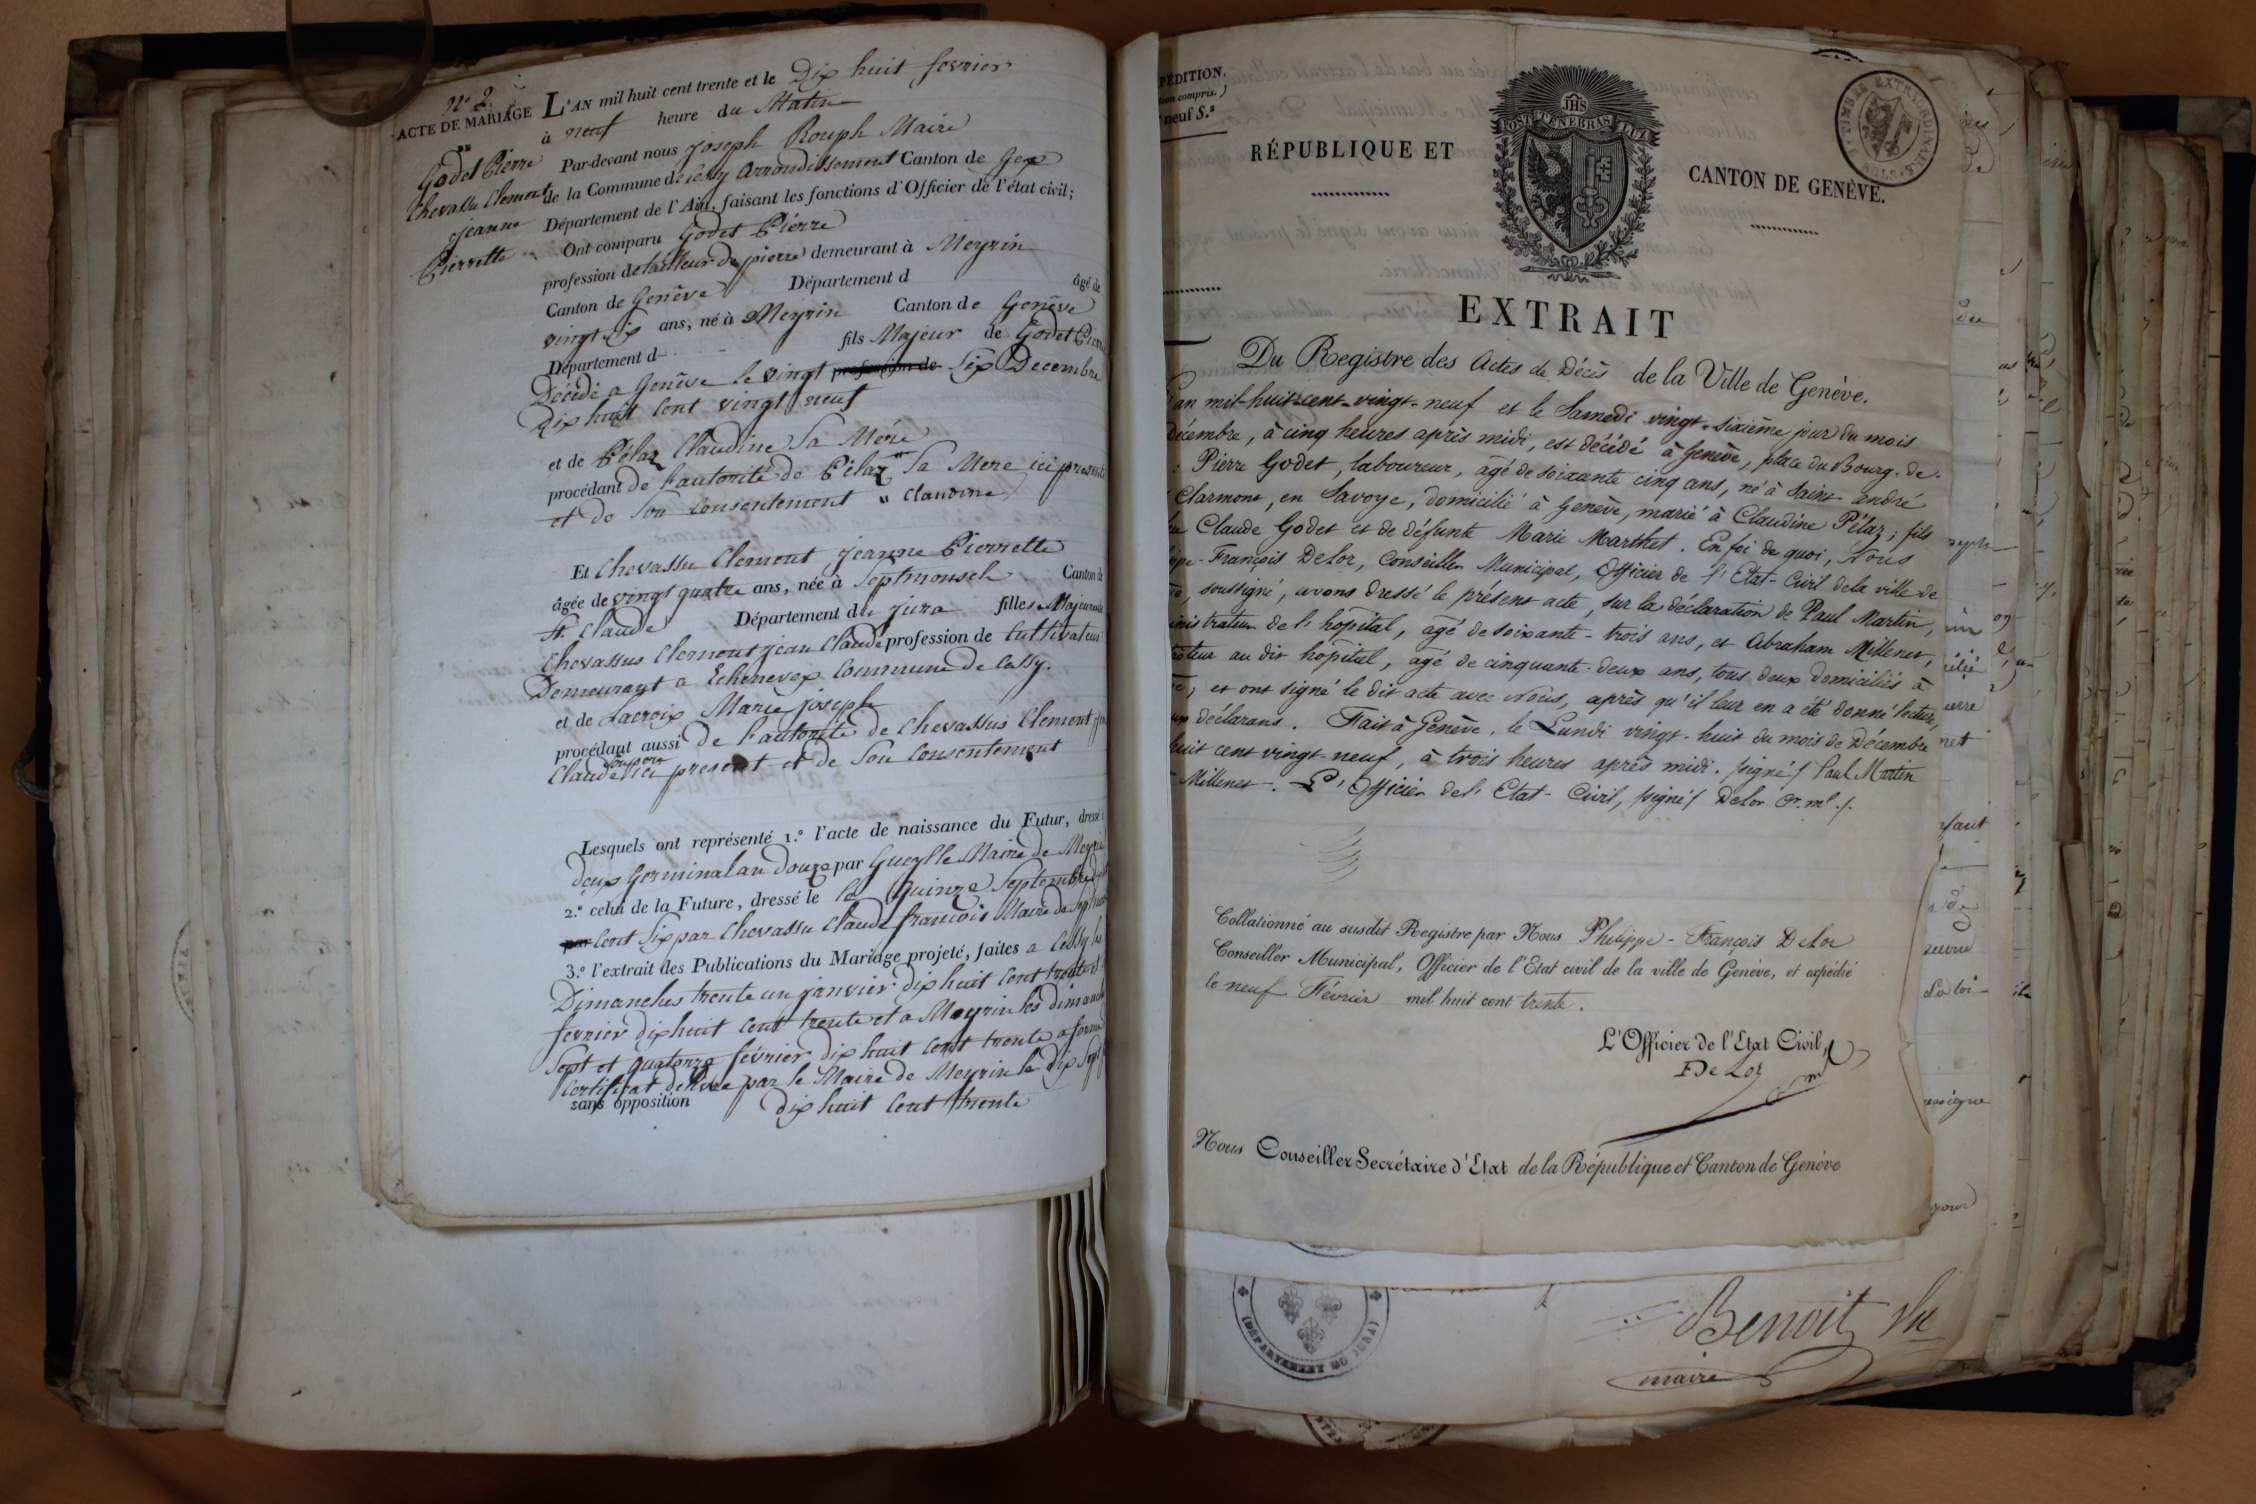 N° 2.
ACTE DE MARIAGE
DE
Godet Pierre
Chevassu Clement
jeanne
Pierrette
L'AN mil huit cent trente et le Dix huit fevrier
à neuf heure du Matin
Par-devant nous joseph Rouph Maire
de la Commune de Cessy arrondissement Canton de Gex
Département de l'Ain, faisant les fonctions d'Officier de l'état civil;
Ont comparu Godet Pierre
profession de tailleur de pierre demeurant à Meyrin
Canton de Genève Département d âgé de
vingt six ans, né à Meyrin Canton de Genêve
Département d fils Majeur de Godet
Décédé a Genêve le vingt profession de Six Decembre
Dix huit Cent vingt neuf
et de Pélaz Claudine Sa Mére
procédant de l'autorité de Pélaz Sa Mere ici
et de Son Consentement " Claudine
Et Chevassu Clement jeanne Pierrette
âgée de vingt quatre ans, née à Septmoncel Canton de
St. Claude Département du jura fille Majeure
Chevassus Clement jean Claude profession de Cultivateur
Demeurant a Echenevex Commune de Cessy.
et de Lacroix Marie joseph
procédant aussi de l'autorité de Chevassus Clement
Claude ici present et de Son Consentement
Lesquels ont représenté 1.° l'acte de naissance du Futur, dressé
deux Germinal an douze par Maire de
2.° celui de la Future, dressé le le quinze Septembre
Cent Six par Chevassu Claude françois Maire de
3.° l'extrait des Publications du Mariage projeté, faites a Cessy les
Dimanches trente un janvier dix huit Cent trente
fevrier dix huit Cent trente et a Meyrin les
Sept et quatorze février dix huit Cent trente
Certificat délivré par le Maire de Meyrin le dix
sans opposition dix huit Cent trente
PÉDITION.
compris.)
neuf S.s
RÉPUBLIQUE ET
JHS
POST TENEBRAS LUX
CANTON DE GENÈVE.
TIMBRE EXTRAORDINAIRE
EXTRAIT
Du Registre des Actes de Décès de la Ville de Genève.
an mil-huit-cent-vingt-neuf et le Samedi vingt-sixième jour du mois
Décembre, à cinq heures après midi, est décédé à Genève, place du Bourg-de-
Pierre Godet, laboureur, âgé de soixante cinq ans, né à Saint André
Clarmont, en Savoye, domicilié à Genève, marié à Claudine Pélaz; fils
Claude Godet et de défunte Marie Marthet. En foi de quoi, Nous
François DeLor, Conseiller Municipal, Officier de l'Etat-Civil de la ville de
soussigné, avons dressé le présent acte, sur la déclaration de Paul Martin,
de l'hopital, âgé de soixante-trois ans, et Abraham Millenet,
au dit hopital, âgé de cinquante-deux ans, tous deux domiciliés à
et ont signé le dit acte avec Nous, après qu'il leur en a été donné lecture,
déclarans. Fait à Genève, le Lundi vingt-huit du mois de Décembre
huit cent vingt-neuf, à trois heures après midi. signé/ Paul Martin
Millenet. L'Officier de l'Etat-Civil, signé/ DeLor
Collationné au susdit Registre par Nous Philippe-François DeLor
Conseiller Municipal, Officier de l'Etat civil de la ville de Genève, et expédié
le neuf Février mil huit cent trente.
L'Officier de l'Etat Civil,
De Lor
Nous Conseiller Secrétaire d'Etat de la République et Canton de Genève
Benoit
maire
(DÉPARTEMENT DU JURA)